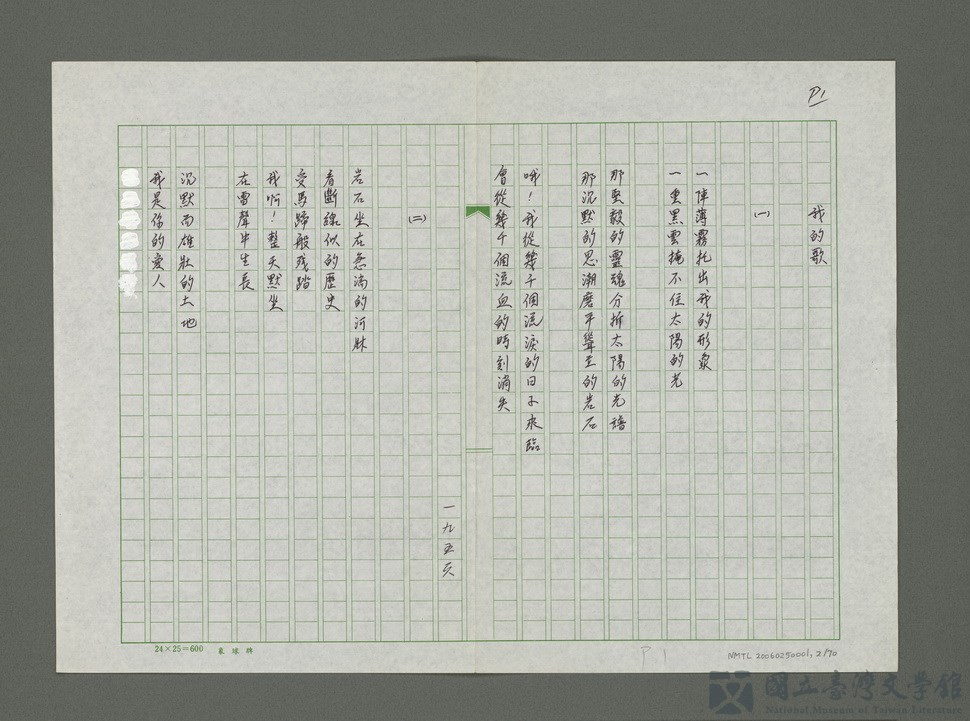 P1
我的歌
(一)
一陣薄霧托出我的形象
一重黑雲掩不住太陽的光
那堅毅的靈魂分析太陽的光譜
那沉默的思潮磨平聳立的岩石
哦！我從幾千個流淚的日子來臨
會從幾千個流血的時刻消失
一九五六
(二)
岩石坐在急湍的河床
看斷線似的歷史
受馬蹄般殘踏
我啊！整天默坐
在雷聲中生長
沉默而雄壯的土地
我是你的愛人
24×25=600
P1
NMTL 20060250001, 2/70
國立臺灣文學館
National Museum of Taiwan Literature